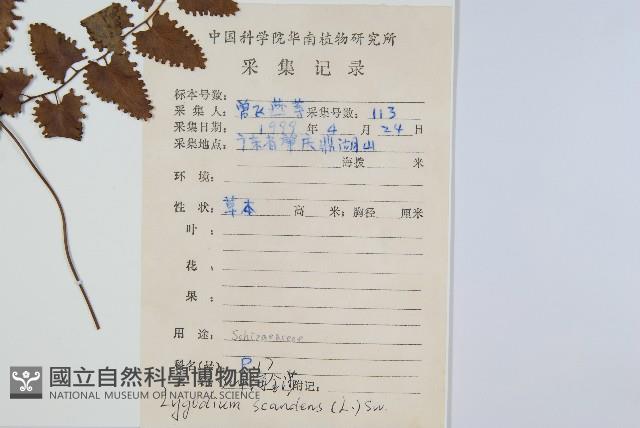 中国科学院华南植物研究所
采集记录
标本号数:
采集人: 曾飞燕等 采集号数: 113
采集日期: 1999 年 4 月 24 日
采集地点: 广东省肇庆鼎湖山
海拨 米
环境:
性状: 草本 高 米; 胸径 厘米
叶:
花:
果:
用途: Schizaeaceae
科名(号) P.17
附记:
Lygodium scandens (L.) Sw.
國立自然科學博物館
NATIONAL MUSEUM OF NATURAL SCIENCE